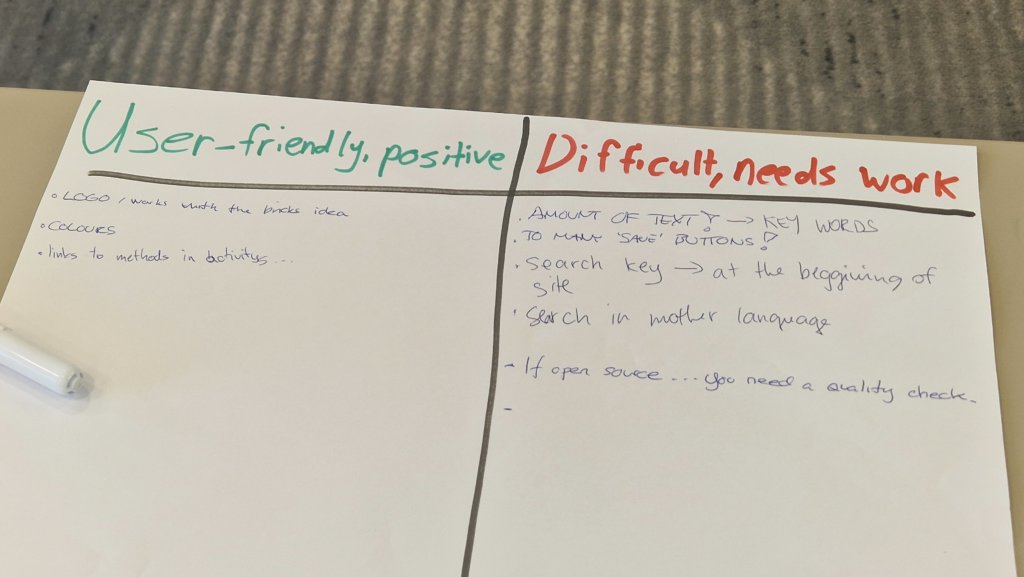 User-friendly, positive
• LOGO / works with the bricks idea
• COLOURS
• links to methods in activitys...
Difficult, needs work
• AMOUNT OF TEXT! → KEY WORDS
• TO MANY 'SAVE' BUTTONS!
• Search key → at the beggining of
site
• Search in mother language
- If open source ... you need a quality check.
-